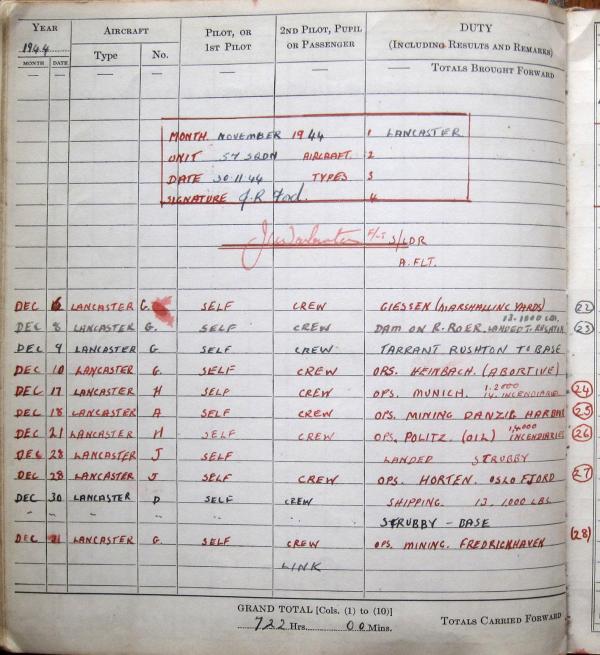 YEAR AIRCRAFT PILOT, OR 2ND PILOT, PUPIL DUTY
1944 Type No. 1ST PILOT OR PASSENGER (INCLUDING RESULTS AND REMARKS)
MONTH DATE
— — — — — — TOTALS BROUGHT FORWARD
MONTH NOVEMBER 1944 1 LANCASTER
UNIT 57 SQDN AIRCRAFT 2
DATE 30.11.44 TYPES 3
SIGNATURE J.R Ford. 4
S/LDR
A. FLT.
DEC 6 LANCASTER G. SELF CREW GIESSEN (MARSHALLING YARDS) 22
13. 1000 LBS.
DEC 8 LANCASTER G. SELF CREW DAM ON R. ROER. LANDED T. RUSHTON 23
DEC 9 LANCASTER G SELF CREW TARRANT RUSHTON TO BASE
DEC 10 LANCASTER G. SELF CREW OPS. HEIMBACH. (ABORTIVE)
DEC 17 LANCASTER H SELF CREW OPS. MUNICH. 1.2000 14. INCENDIARIES 24
DEC 18 LANCASTER A SELF CREW OPS. MINING DANZIG HARBOUR 25
DEC 21 LANCASTER H SELF CREW OPS. POLITZ. (OIL) 1,4000 INCENDIARIES 26
DEC 28 LANCASTER J SELF LANDED STRUBBY
DEC 28 LANCASTER J SELF CREW OPS. HORTEN. OSLO FJORD 27
DEC 30 LANCASTER D SELF CREW SHIPPING. 13. 1,000 LBS.
" " " " " STRUBBY - BASE
DEC 31 LANCASTER G. SELF CREW OPS. MINING. FREDRICKHAVEN (28)
LINK
GRAND TOTAL [Cols. (1) to (10)]
722 Hrs. 00 Mins. TOTALS CARRIED FORWARD